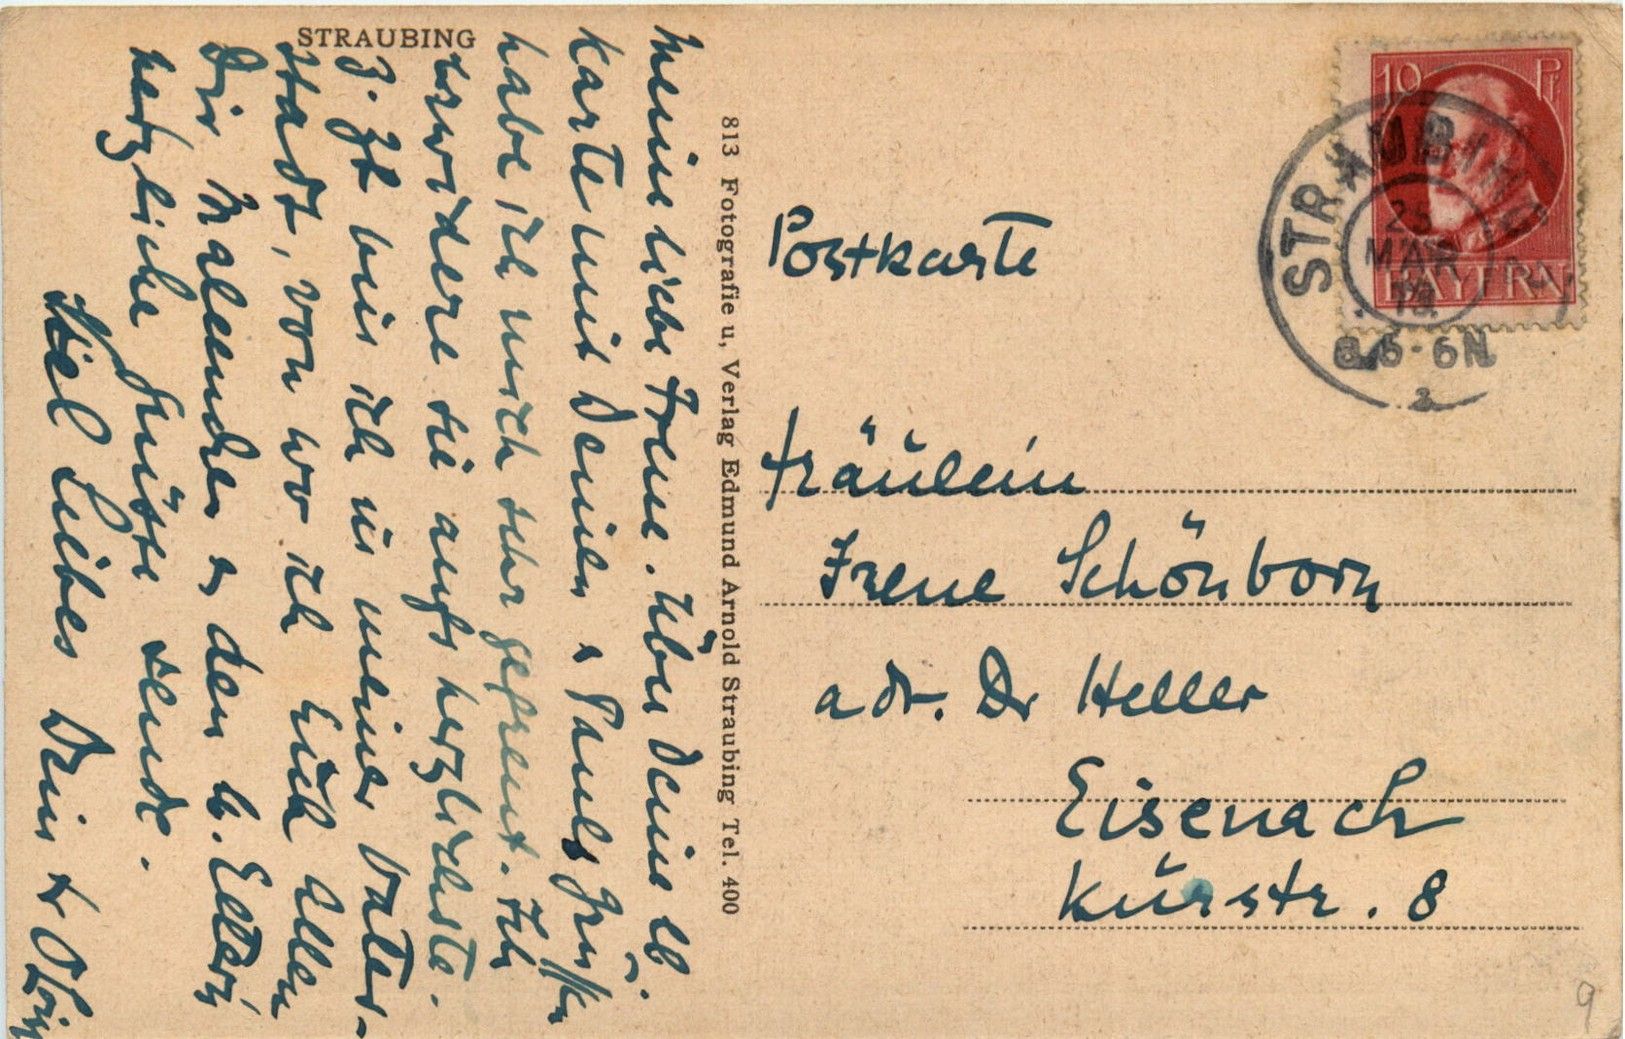 STRAUBING
Meine liebe Irene. Über Deine lb.
Karte mit Deinen & Pauls Grüßen
habe ich mich sehr gefreut. Ich
erwidere sie aufs herzlichste.
Z. Zt bin ich in meiner Vater-
stadt, von wo ich Euch allen
Dir & den lb. Eltern
herzliche Grüsse sende.
Viel Liebes Dein
813 Fotografie u, Verlag Edmund Arnold Straubing Tel. 400
10 Pf
BAYERN
STRAUBING
25
MÄR
18.
5-6N
2
Postkarte
Fräulein
Irene Schönborn
adr. Dr Heller
Eisenach
Kurstr. 8
9